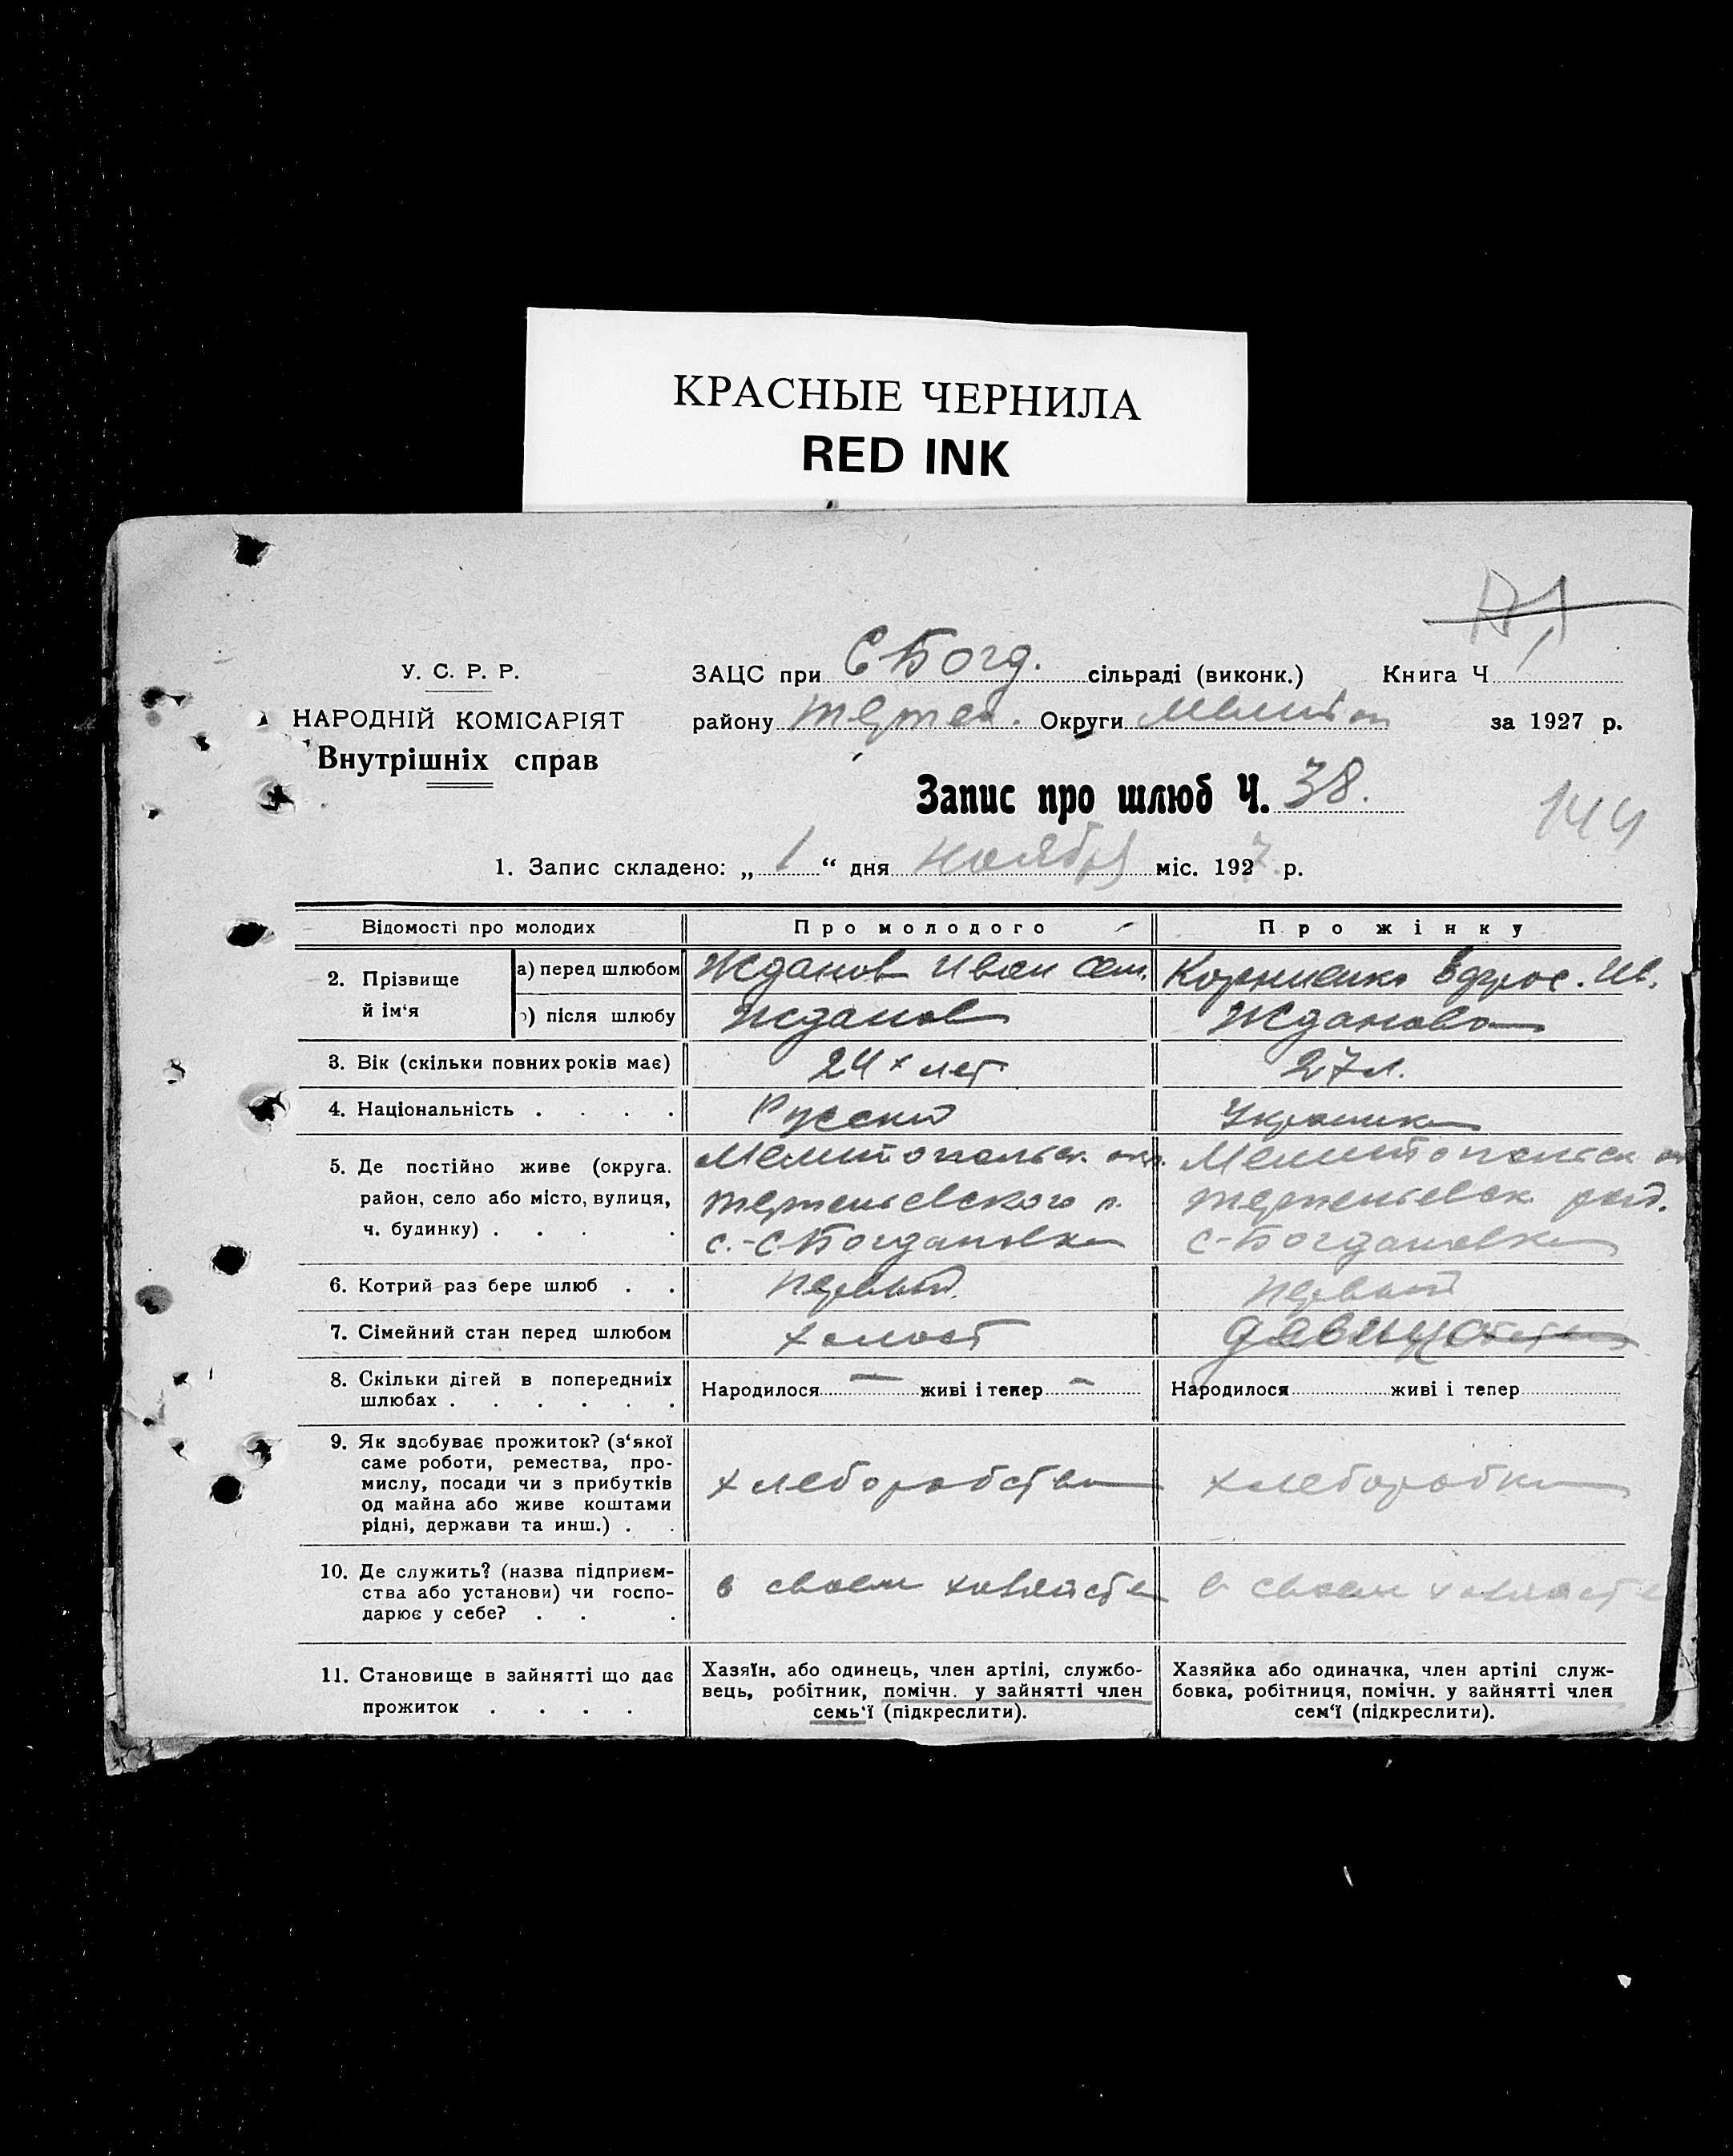 КРАСНЫЕ ЧЕРНИЛА
RED INK
У. С. Р. Р.
НАРОДНІЙ КОМІСАРІЯТ
Внутрішніх справ
ЗАЦС при С Богд. сільраді (виконк.) Книга Ч
району Терпен. Округи Мелитоп за 1927 р.
Запис про шлюб Ч. 38.
144
1. Запис складено: „ 1 “ дня Ноября міс. 1927 р.
Відомості про молодих Про молодого Про жінку
2. Прізвище й ім‘я
а) перед шлюбом Жданов Иван Сем. Корниенко Ефрос. Ив.
б) після шлюбу Жданов Жданова
3. Вік (скільки повних років має) 24х лет 27 л.
4. Національність . . . . Русский Украинка
5. Де постійно живе (округа. Мелитопольск. окр. Мелитопольск ок
район, село або місто, вулиця, Терпеньевского р. Терпеньевск рай.
ч. будинку) . . . . с.-С Богдановка С-Богдановка
6. Котрий раз бере шлюб . . первый первый
7. Сімейний стан перед шлюбом холост девица
8. Скільки дітей в попередніх Народилося — живі і тепер — Народилося живі і тепер
шлюбах . . . . . .
9. Як здобуває прожиток? (з‘якої
саме роботи, ремества, про-
мислу, посади чи з прибутків хлеборобство хлеборобка
од майна або живе коштами
рідні, держави та инш.) . .
10. Де служить? (назва підприєм-
ства або установи) чи госпо- в своем хозяйстве в своем хозяйстве
дарює у себе? . . .
11. Становище в зайнятті що дає
прожиток . . . .
Хазяїн, або одинець, член артілі, службо-
вець, робітник, помічн. у зайнятті член
семь‘ї (підкреслити).
Хазяйка або одиначка, член артілі служ-
бовка, робітниця, помічн. у зайнятті член
сем‘ї (підкреслити).